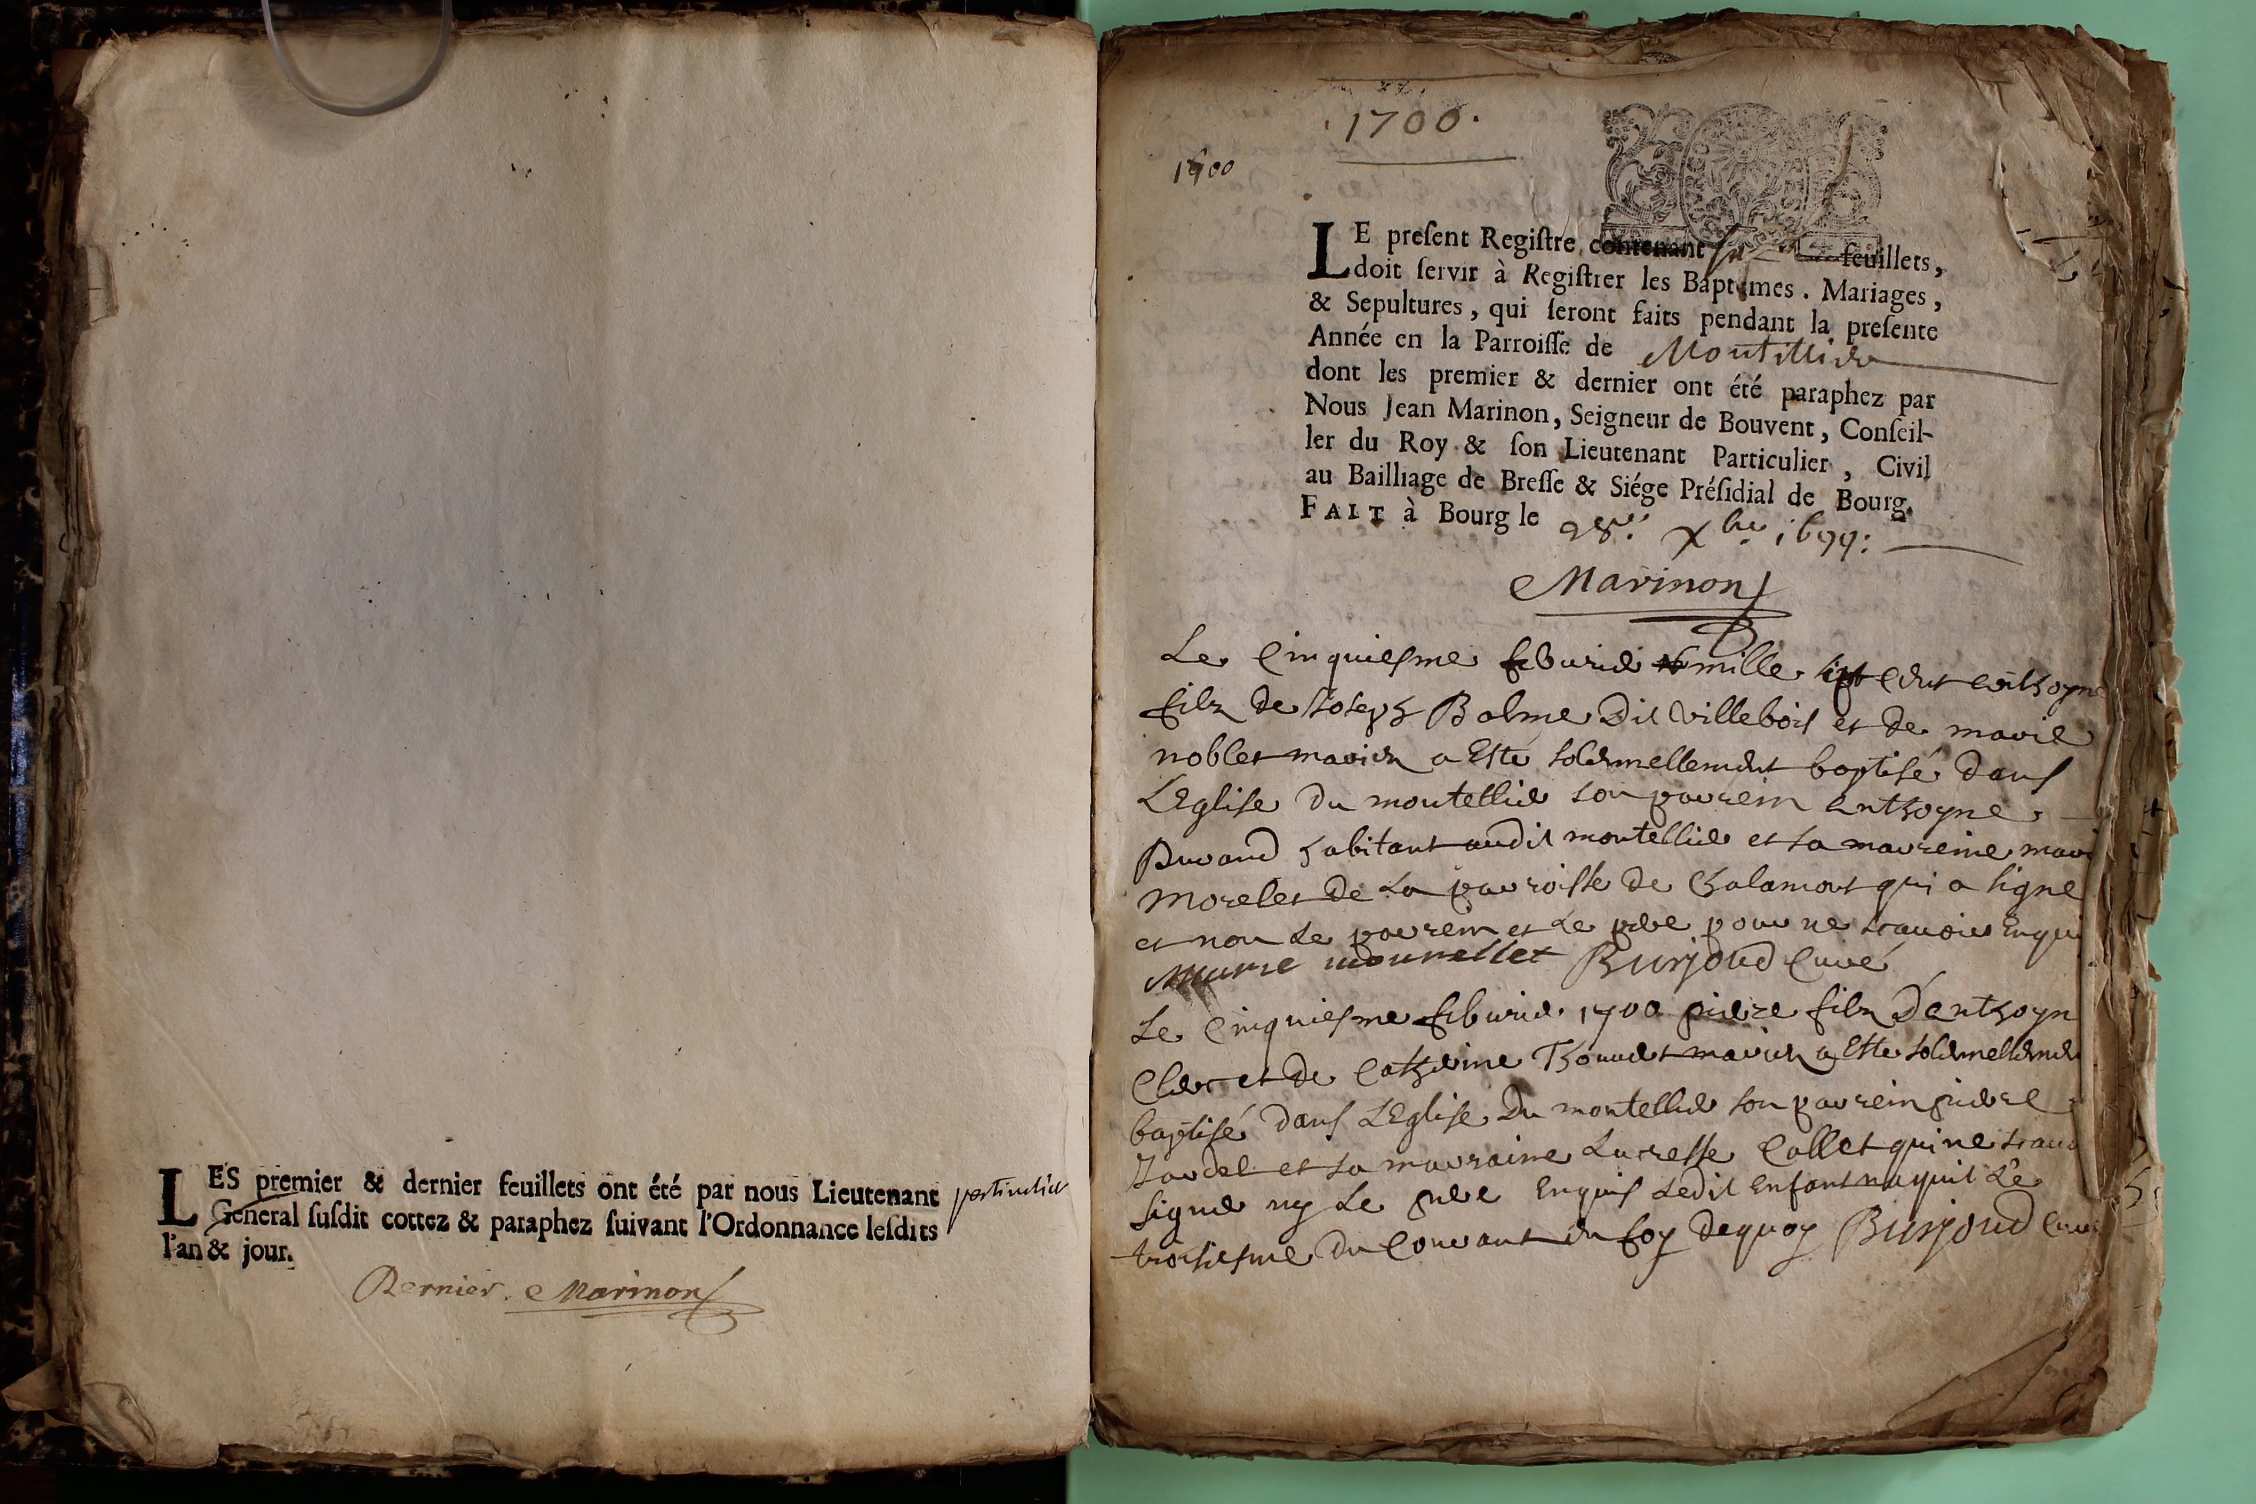 LES premier & dernier feuillets ont été par nous Lieutenant particulier
General susdit cottez & paraphez suivant l'Ordonnance lesdits
l'an & jour.
Dernier. Marinon
1700.
1700
LE present Registre, contenant feuillets,
doit servir à Registrer les Baptêmes. Mariages,
& Sepultures, qui seront faits pendant la presente
Année en la Parroisse de Montillier
dont les premier & dernier ont été paraphez par
Nous Jean Marinon, Seigneur de Bouvent, Conseil-
ler du Roy & son Lieutenant Particulier, Civil
au Bailliage de Bresse & Siége Présidial de Bourg.
FAIT à Bourg le 28e. xbre 1699:
Marinon
Le Cinquiesme feburier mille sept cent enthoyne
filz de Joseph Balme Dit villebois et de marie
noblet mariez a Esté solennellement baptisé dans
L'Eglise du montellier son parrein Enthoyne
Durand habitant audit montellier et sa marreine mari
Morelet de La parroisse de Chalamont qui a signe
et non Le parrein et Le pere pour ne scauoir Enqui
Marie mourellet Burjoud Curé
Le Cinquiesme feburier 1700 pierre filz D'enthoyn
Clerc et de Catherine Thouuet mariez a Este solennellemen
baptisé dans L'Eglise Du montellier son parrein pierre
Jardet et sa marraine Lucresse Collet qui ne scau
signer ny Le pere Enquis Ledit Enfant naquit Le
troisiesme du Courant En foy dequoy Burjoud Curé